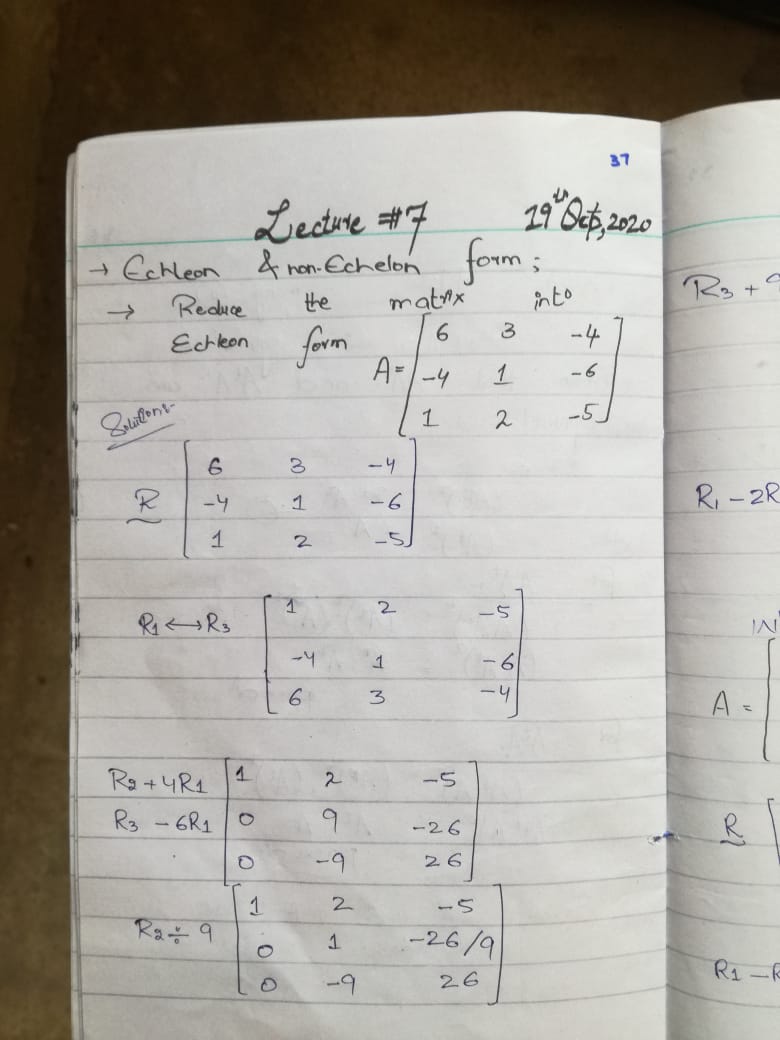 37
Lecture #7 19th Oct, 2020
→ Echleon & non-Echelon form ;
→ Reduce the matrix into
Echleon form
A = [ 6 3 -4
-4 1 -6
1 2 -5 ]
Solution:-
R [ 6 3 -4
-4 1 -6
1 2 -5 ]
R1 ↔ R3 [ 1 2 -5
-4 1 -6
6 3 -4 ]
R2 + 4R1 [ 1 2 -5
R3 - 6R1 0 9 -26
0 -9 26 ]
[ 1 2 -5
R2 ÷ 9 0 1 -26/9
0 -9 26 ]
R3 + 9
R1 - 2R
IN
A = [
R [
R1 - R